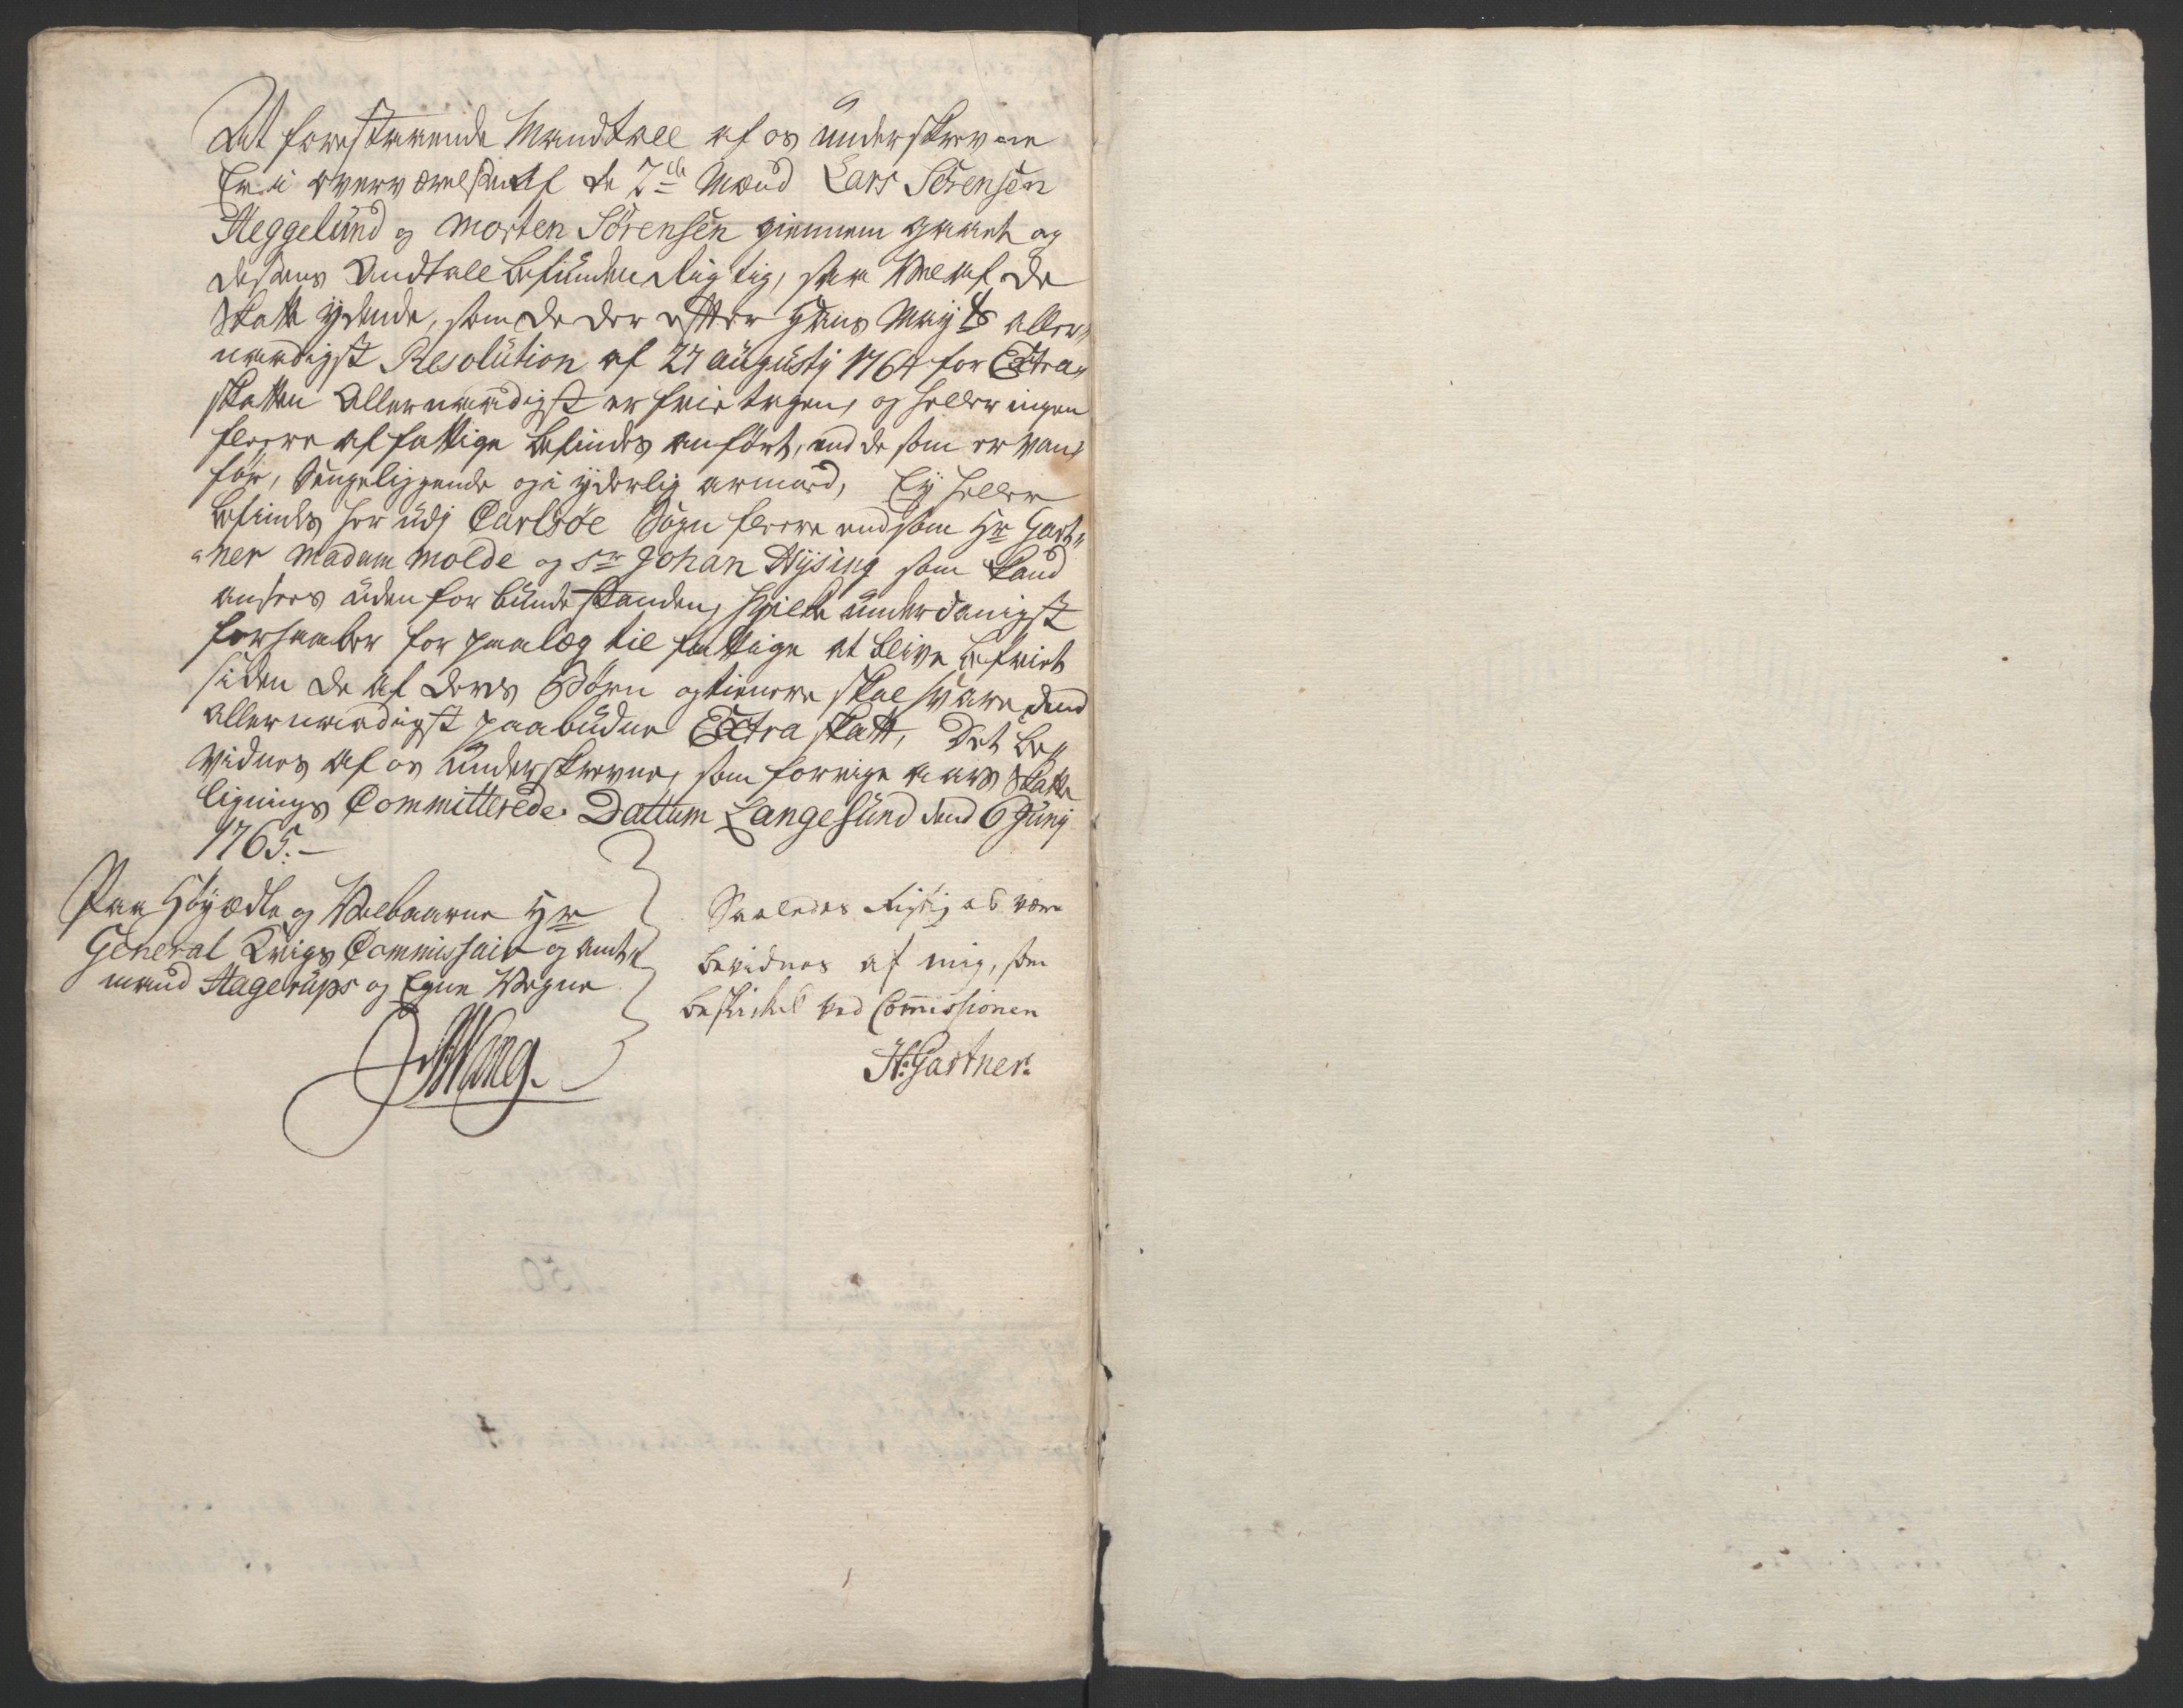 At forestaaende Mandtall af os underskrevne
Er i overværelse af de 2de Mænd Lars Sörensen
Heggelund og Morten Sörensen giennem gaaet og
desens Andtall befunden Rigtig, saa vel af de
Skatt ydende, som de der efter Hans Mayts aller„
naadigst Resolution af 27 augusty 1764 for Extra„
skatten Allernaadigst er frietagen, og heller ingen
fleere af fattige befindes anført, end de som er van„
før, Sengeliggende og i yderlig armod, Ey heller
befindes her udj Carlsøe Sogn fleere end som Hr Gart„
„ner Madam Molde og Sr Johan Hysing som kand
ansees uden for bunde standen, hvilke underdanigst
forhaaber for paalæg til fattige at blive befriet
siden de af deres Børn og tienere skal svare dend
allernaadigst paabudne Extra skatt, Det be„
vidnes af os underskrevne, som forrige aars Skatte
lignings Committerede. Dattum Langesund dend 6 Juny
1765.—
Paa Høyædle og Velbaarne Hr
General Krigs Commissair og Amt„
mand Hagerups og Egne Vegne
Wang.
Saaledes Rigtig at være
bevidnes af mig, som
beskikket ved Commissionen
H: Gartner.